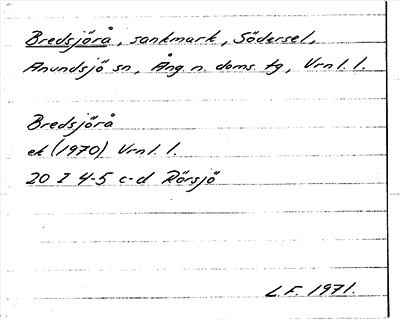 Bredsjörå, sankmark, Södersel,
Anundsjö sn, Ång n. doms. tg, Vrnl. l.
Bredsjörå
ek (1970) Vrnl. l.
20 I 4-5 c-d Rörsjö
L.F. 1971.